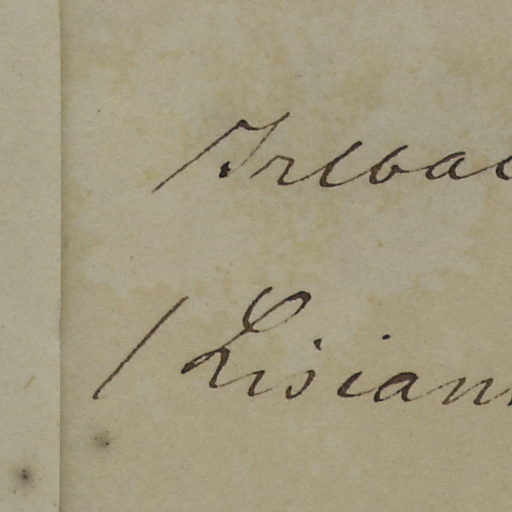 / Trebac
/ Lisian